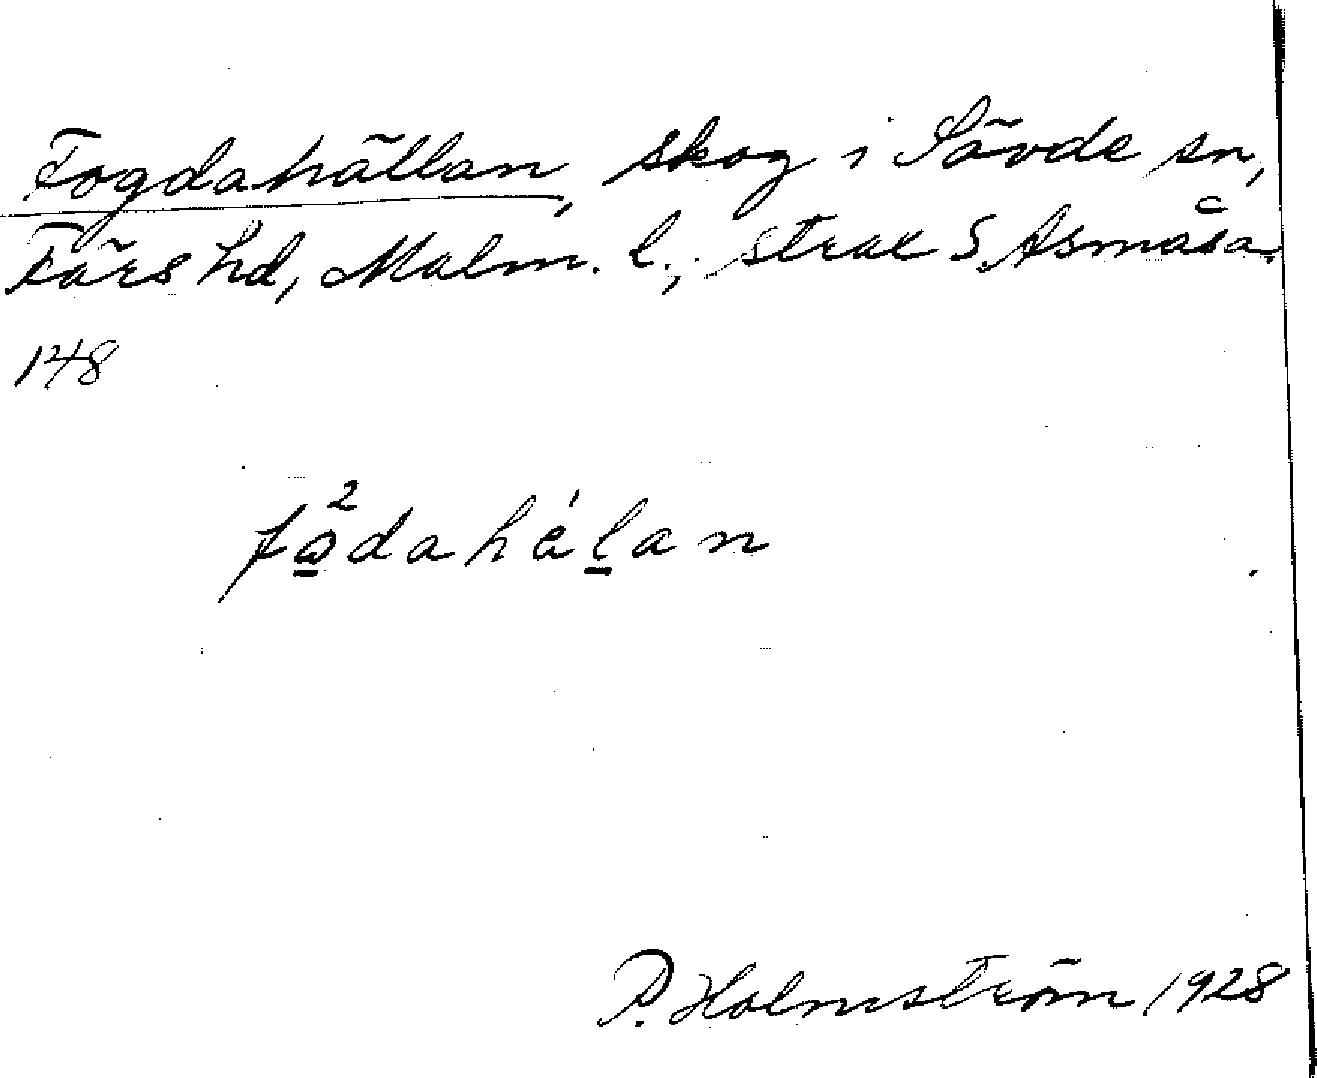 Fogdahällan, skog i Sövde sn,
Färs hd, Malm. l., strax S Asmåsa.
148
fo̱²dahéḻan
P. Holmström 1928